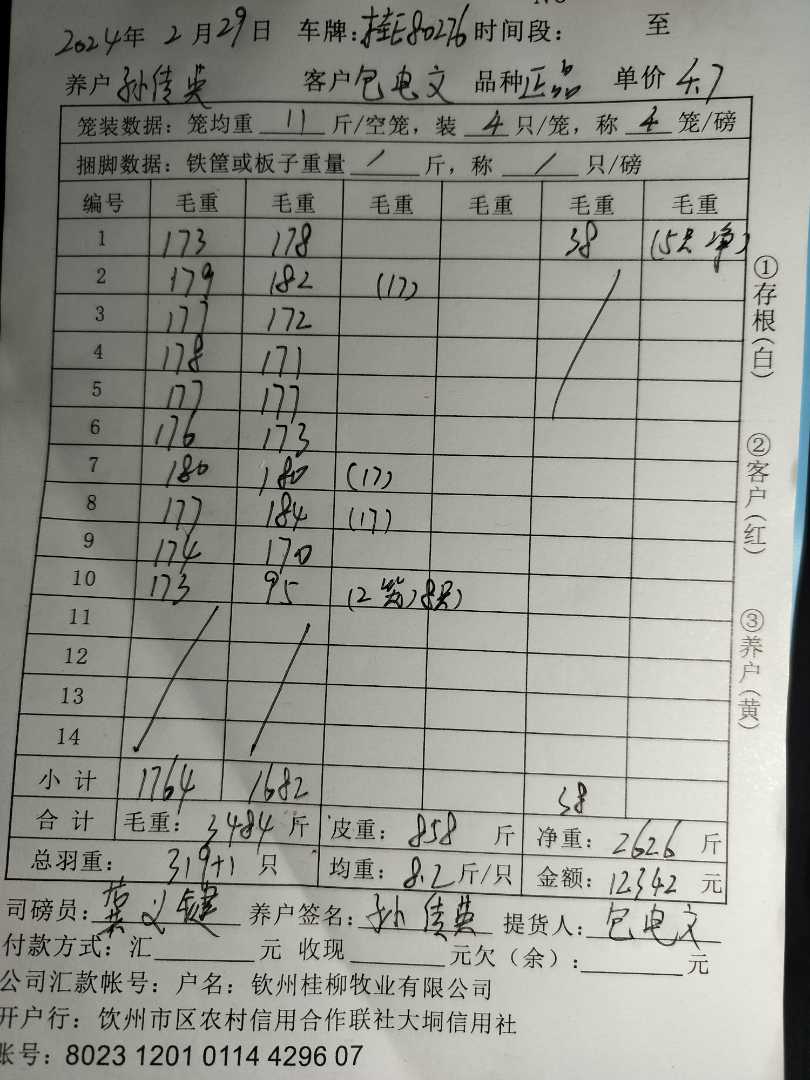 2024年 2月29日 车牌:桂E80276 时间段: 至
养户 孙倩英 客户 包电文 品种 正品 单价 4.7
笼装数据: 笼均重 11 斤/空笼, 装 4 只/笼, 称 4 笼/磅
捆脚数据: 铁筐或板子重量 / 斤, 称 / 只/磅
编号 毛重 毛重 毛重 毛重 毛重 毛重
1 173 178 38 (5只 净)
2 179 182 (17)
3 177 172
4 178 171
5 177 177
6 176 173
7 180 180 (17)
8 177 184 (17)
9 174 170
10 173 95 (2笼)8只)
11
12
13
14
小 计 1764 1682 38
合 计 毛重: 3484 斤 皮重: 858 斤 净重: 2626 斤
总羽重: 319+1 只 均重: 8.2 斤/只 金额: 12342 元
司磅员: 义健 养户签名: 孙倩英 提货人: 包电文
付款方式: 汇 元 收现 元欠(余): 元
公司汇款帐号: 户名: 钦州桂柳牧业有限公司
开户行: 钦州市区农村信用合作联社大垌信用社
账号: 8023 1201 0114 4296 07
①存根(白)
②客户(红)
③养户(黄)